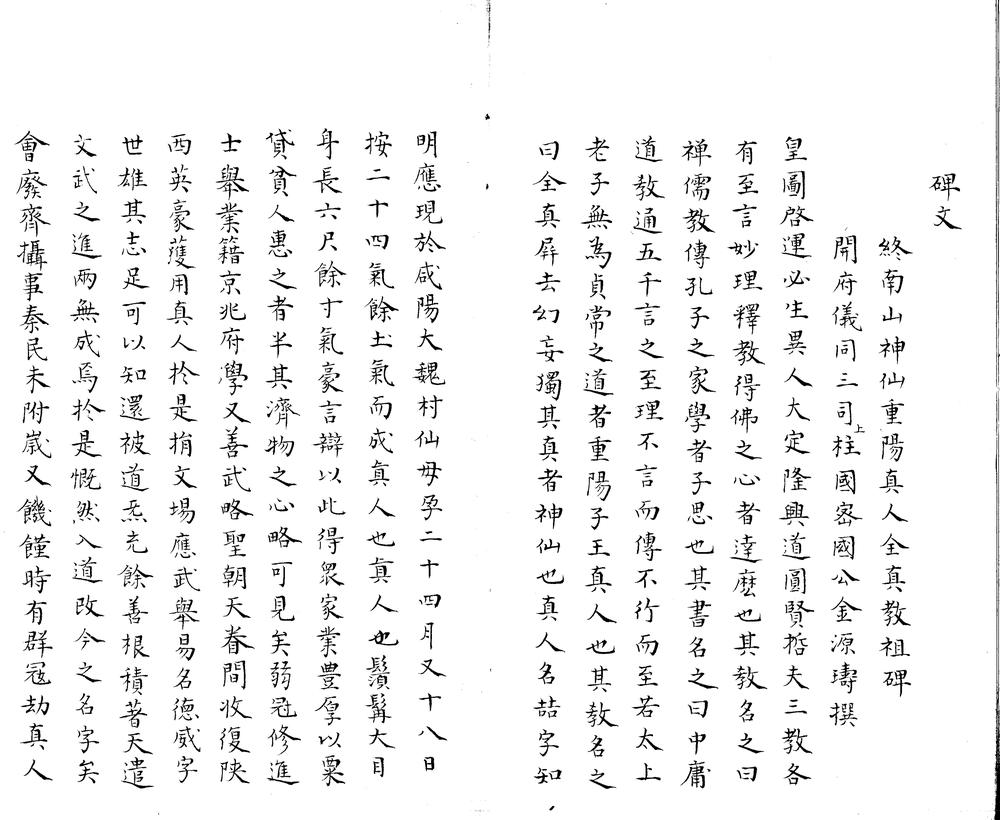 碑文
終南山神仙重陽真人全真教祖碑
開府儀同三司上柱國密國公金源璹撰
皇圖啓運必生異人大定隆興道圓賢哲夫三教各
有至言妙理釋教得佛之心者達麽也其教名之曰
禅儒教傳孔子之家學者子思也其書名之曰中庸
道教通五千言之至理不言而傳不行而至若太上
老子無為貞常之道者重陽子王真人也其教名之
曰全真屏去幻妄獨其真者神仙也真人名喆字知
明應現於咸陽大魏村仙母孕二十四月又十八日
按二十四氣餘土氣而成真人也真人也鬚髯大目
身長六尺餘寸氣豪言辯以此得眾家業豊厚以粟
貸貧人惠之者半其濟物之心略可見矣弱冠修進
士舉業籍京兆府學又善武略聖朝天眷間收復陝
西英豪蒦用真人於是捐文場應武舉易名德威字
世雄其志足可以知還被道炁充餘善根積著天遣
文武之進兩無成焉於是慨然入道改今之名字矣
會廢齊攝事秦民未附嵗又饑饉時有群冦劫真人